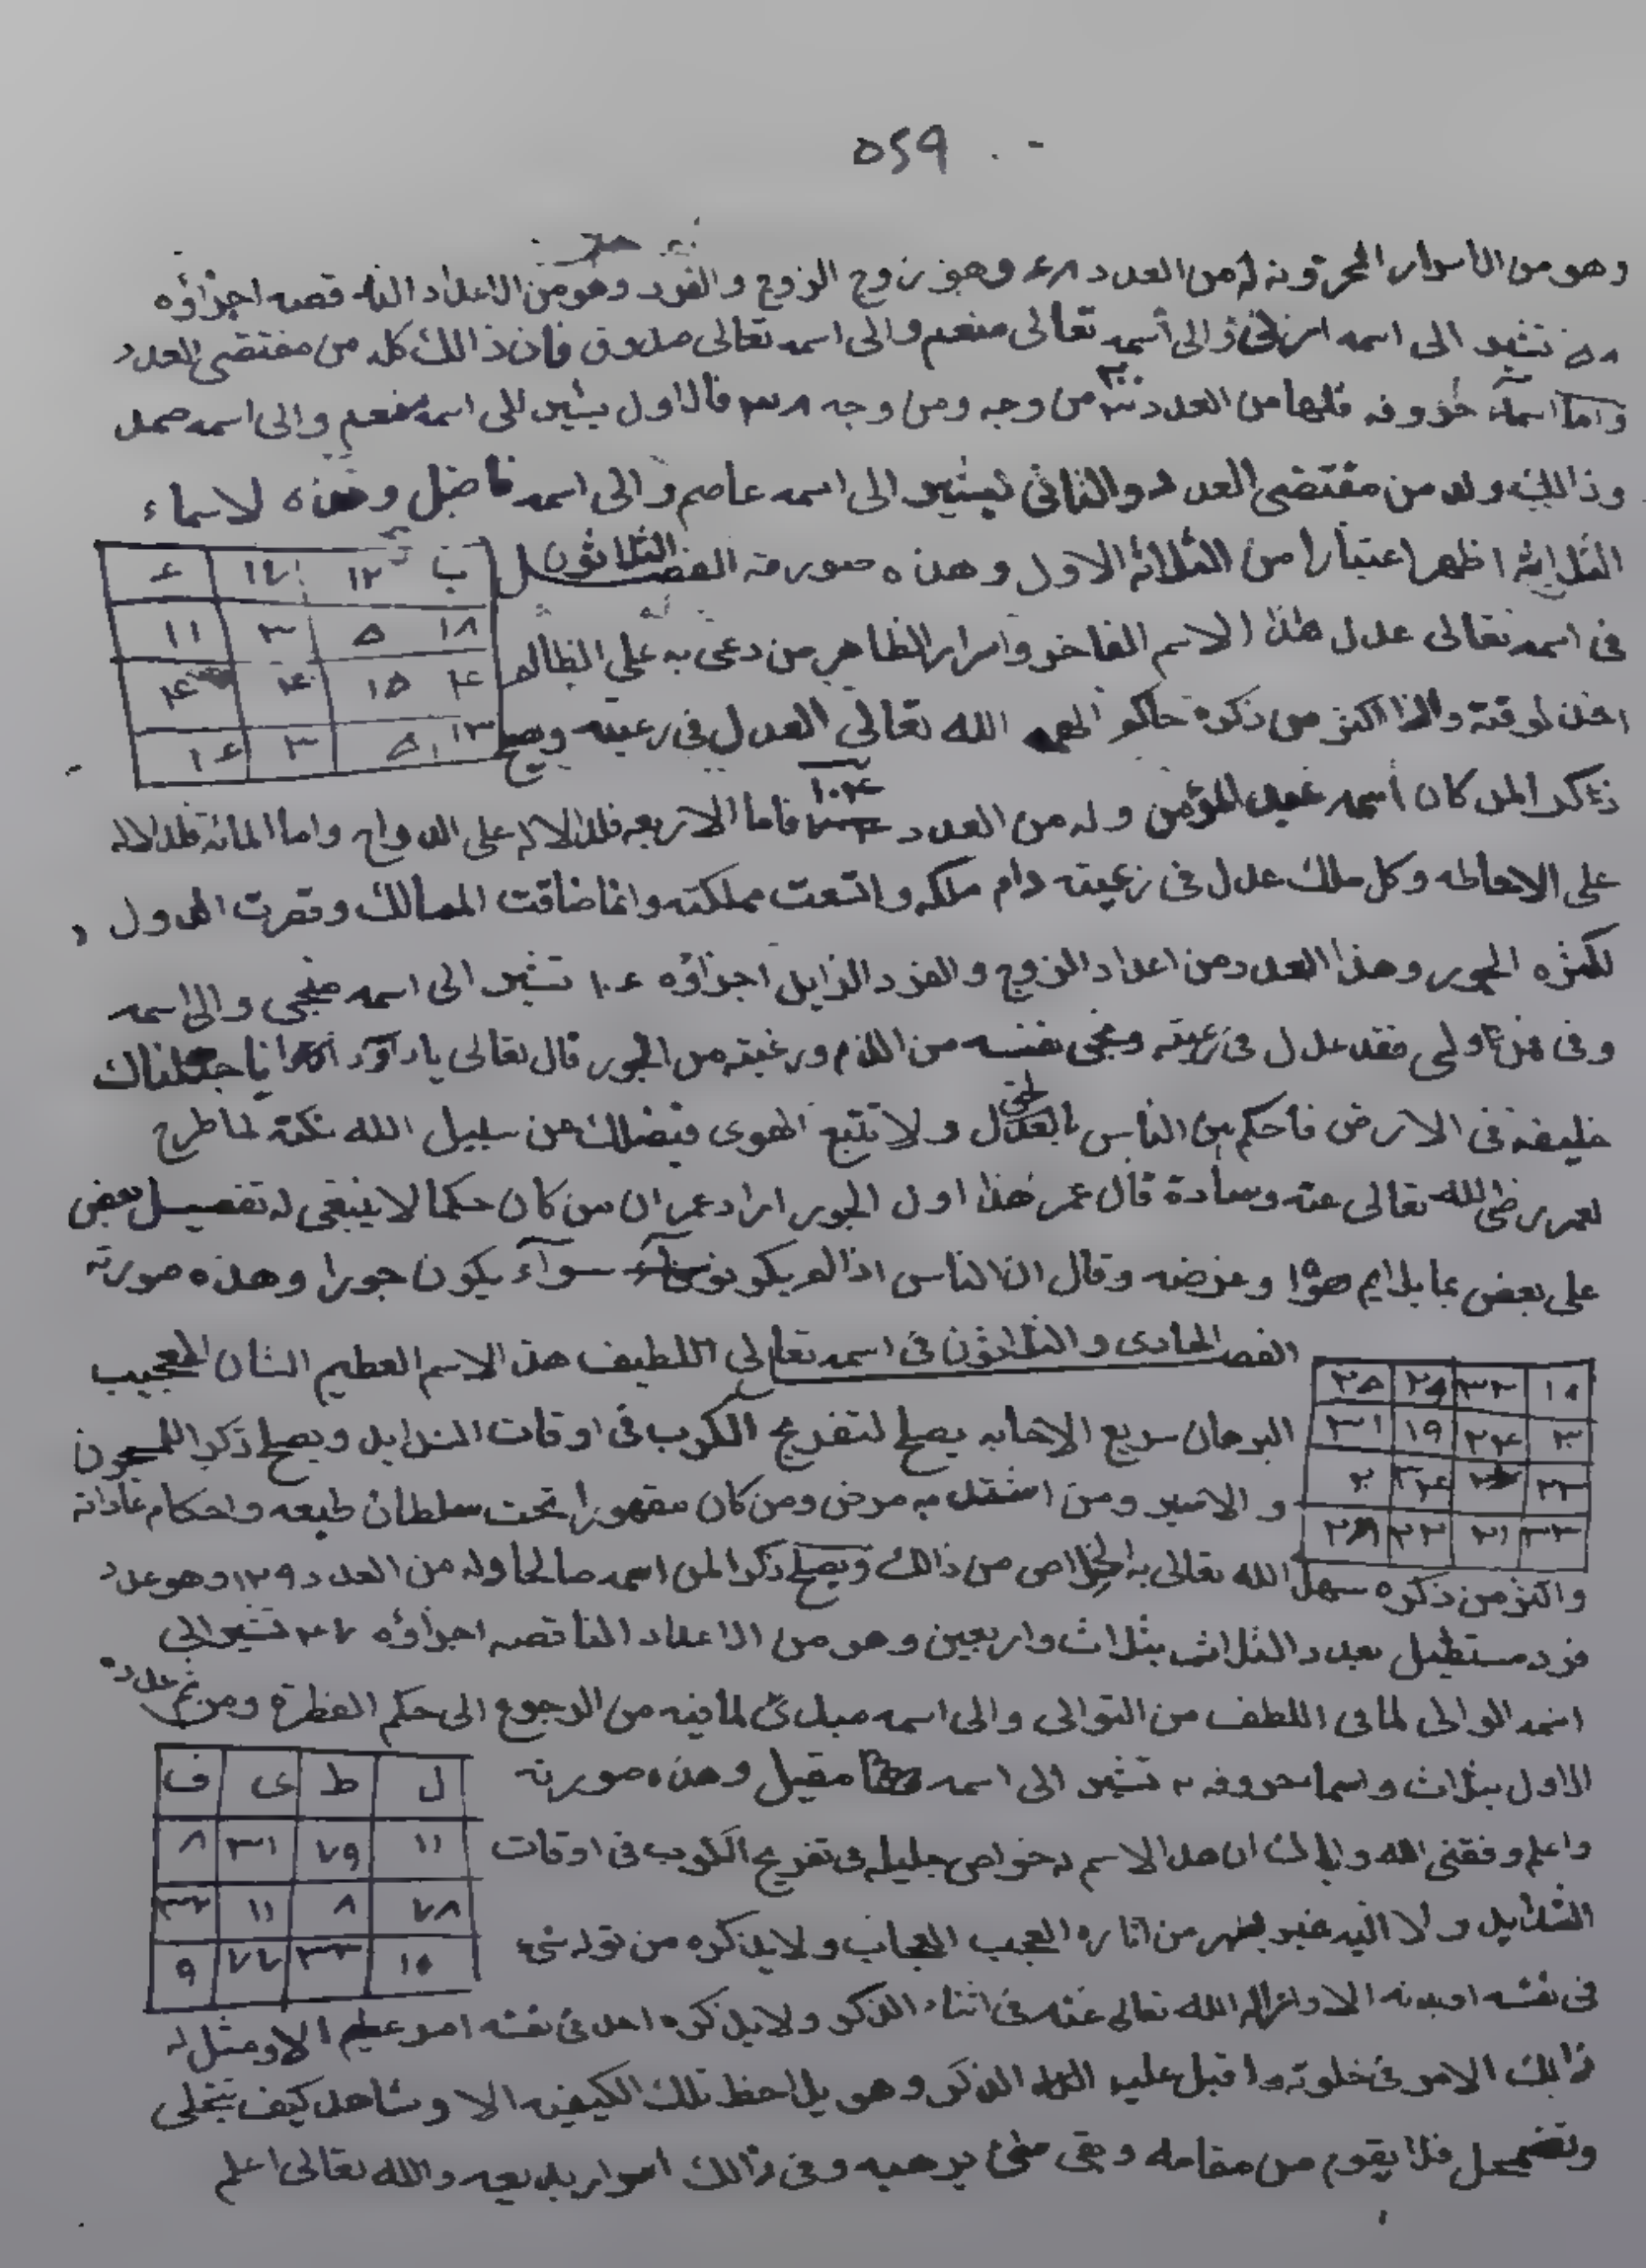 ٥٢٩
وهو من الاسرار المخزونه له من العدد ٤٨ وهو زوج الزوج والفرد وهو من الاعداد النا قصه اجزاؤه
٥٨ تشير الى اسمه ازلى والى اسمه تعالى منعم والى اسمه تعالى فان ذالك كله من مقتضى العدد
واما اسماء حروفه فلها من العدد من وجه ومن وجه فالاول يشير الى اسمه منعم والى اسمه
وذالك وله من مقتضى العدد والثانى يشير الى اسمه عاصم والى اسمه فاضل وهذه لاسماء
الثلاثه اظهر اعتبارا من الثلاثه الاول وهذه صورته الفصل الثلاثون
ب ١٢ ١٧ ٤
١٨ ٥ ٣ ١١
٤ ١٥ ٤
١٣ ٥ ٣ ١٤
فى اسمه تعالى عدل هذا الاسم الفاخر واسرار الظاهر من دعى به على الظالم
اخذ لوقته واذا اكثر من ذكره حاكم الهمه الله تعالى العدل فى رعيته ويصلح
ذكر المن كان اسمه عبد المؤمن وله من العدد ١٠٤ فاما الاربعه فلدلاله على الدوام واما المائة فلدلاله
على الاحاطه وكل ملك عدل فى رعيته دام ملكه واتسعت مملكته وانما ضاقت الممالك وقصرت الدول
لكثره الجور وهذا العدد من اعداد الزوج والفرد الزايد اجزاؤه ١٠٤ تشير الى اسمه منجى والى اسمه
وفى فقد عدل فى رعيته ونجى نفسه من الاثم ورعيته من الجور قال تعالى ياداود انا جعلناك
خليفه فى الارض فاحكم بين الناس بالحق ولا تتبع الهوى فيضلك عن سبيل الله نكته لما طرح
لعمر رضى الله تعالى عنه وسادة قال عمر هذا اول الجور اراد عمر ان من كان حكما لا ينبغى له تفضيل بعض
على بعض بما يلايم هواه وغرضه وقال ان الناس اذا لم يكونو سواء يكون جورا وهذه صورته
الفصل الحادى والثلاثون فى اسمه تعالى اللطيف هذ الاسم العظيم الشان العجيب
٢٥ ٢٩ ٣٢ ١٨
٣١ ١٩ ٢٤
٢٣
٣٣ ٢١ ٢٢
البرهان سريع الاجابه يصلح لتفريج الكروب فى اوقات الشدايد ويصلح ذكر المسجون
والاسير ومن اشتد به مرض ومن كان مقهورا تحت سلطان طبعه واحكام عاداته
واكثر من ذكره سهل الله تعالى به الخلاص من ذالك ويصلح ذكر المن اسمه صالحا وله من العدد ١٢٩ وهو عدد
فرد مستطيل بعدد الثلاث بثلاث واربعين وهو من الاعداد الناقصه اجزاؤه ٤٧ تشير الى
اسمه الوالى لما فى اللطف من التوالى والى اسمه مبدئ لما فيه من الرجوع الى حكم الفطرة ومن ثم عدده
الاول بثلاث واسما حروفه تشير الى اسمه مقيل وهذه صورته
ل ط ى ف
١١ ٧٩ ٣١ ٨
٧٨ ٨ ١١ ٣٢
١٠ ٣٣ ٧٧ ٩
واعلم وفقنى الله واياك ان هذ الاسم له خواص جليله فى تفريج الكروب فى اوقات
الشدايد ولا اليه غير يظهر من اثاره العجب العجاب ولا يذكره من توله شئ
فى نفسه او بدنه الا وازاله الله تعالى عنه فى اثناء الذكر ولا يذكره احد فى نفسه امر عظيم الا ومثل له
ذالك الامر فى خلوته واقبل عليه الذكر وهو يلاحظ تلك الكيفيه الا وشاهد كيف تنجلى
وتضمحل فلا يقوم من مقامه وبقى شئ يرهبه وفى ذالك اسرار بديعه والله تعالى اعلم